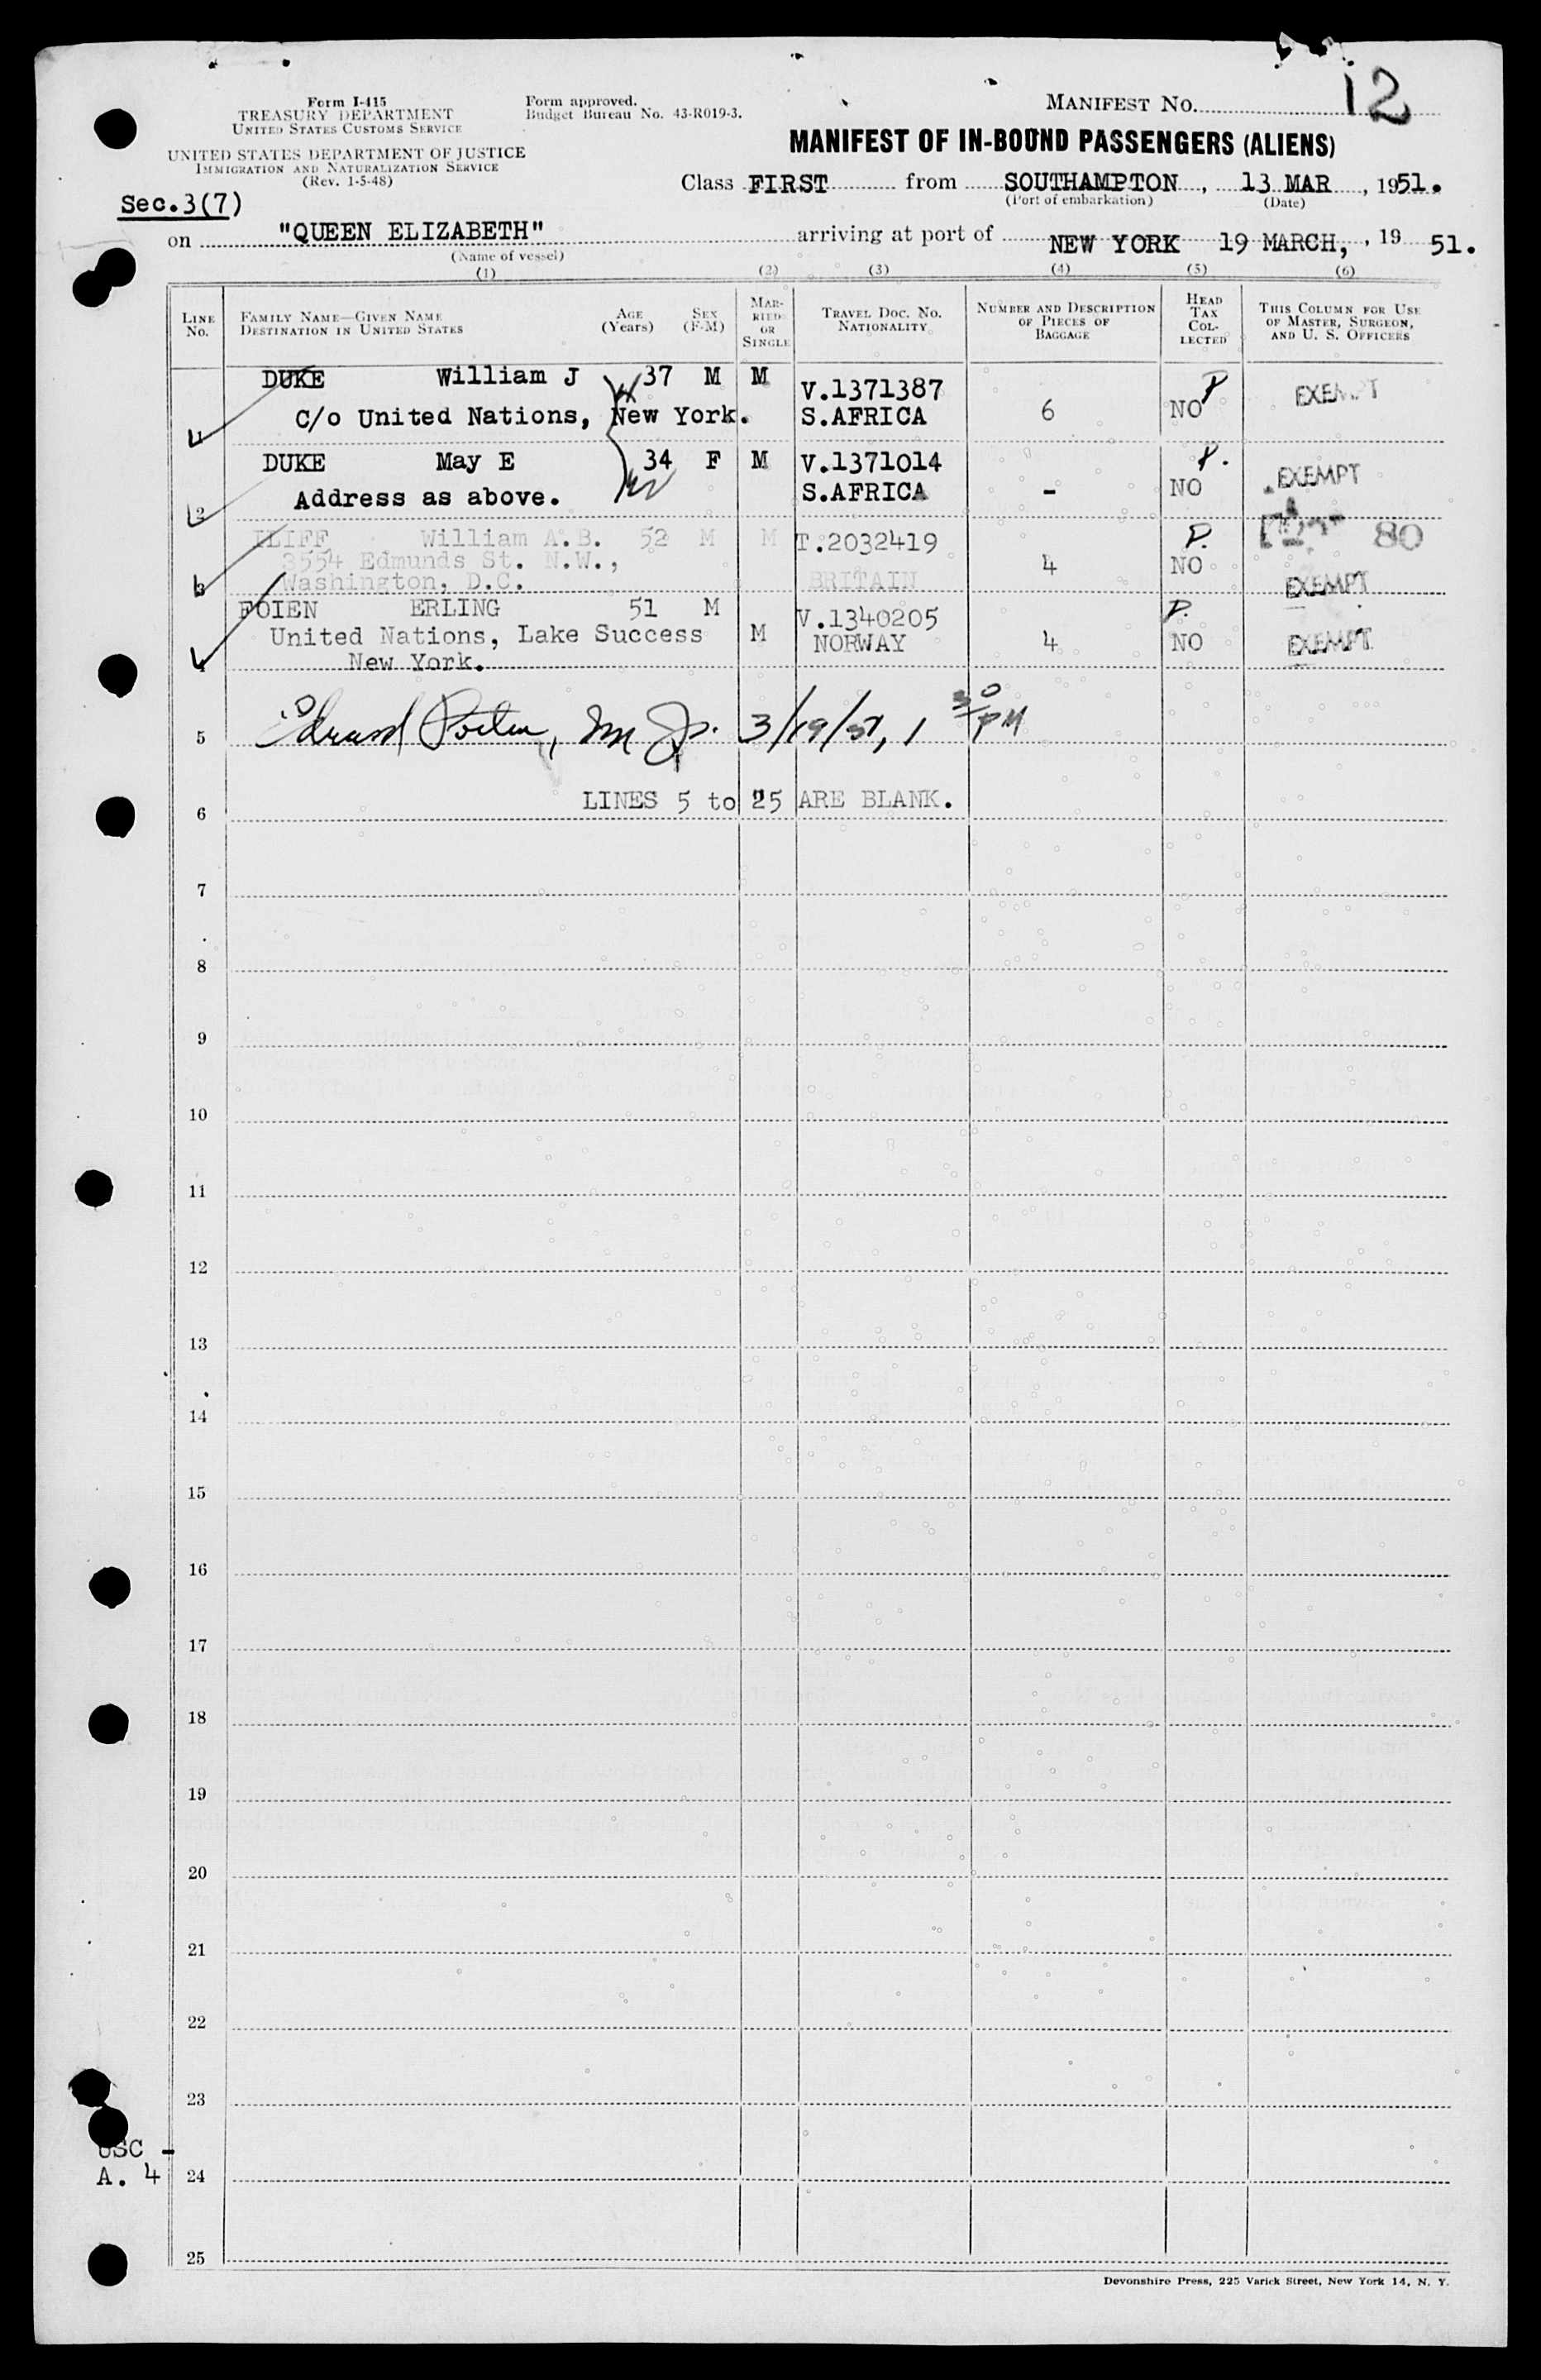 Form I-415
TREASURY DEPARTMENT
UNITED STATES CUSTOMS SERVICE
UNITED STATES DEPARTMENT OF JUSTICE
IMMIGRATION AND NATURALIZATION SERVICE
(Rev. 1-5-48)
Form approved.
Budget Bureau No. 43-R019-3.
MANIFEST NO. 12
MANIFEST OF IN-BOUND PASSENGERS (ALIENS)
Class FIRST from SOUTHAMPTON, 13 MAR, 1951.
(Port of embarkation) (Date)
Sec.3(7)
on "QUEEN ELIZABETH" arriving at port of NEW YORK 19 MARCH, , 19 51.
(Name of vessel)
(1) (2) (3) (4) (5) (6)
LINE No. FAMILY NAME—GIVEN NAME DESTINATION IN UNITED STATES AGE (Years) SEX (F-M) MARRIED OR SINGLE TRAVEL DOC. NO. NATIONALITY NUMBER AND DESCRIPTION OF PIECES OF BAGGAGE HEAD TAX COLLECTED THIS COLUMN FOR USE OF MASTER, SURGEON, AND U. S. OFFICERS
DUKE William J 37 M M V.1371387 P EXEMPT
1 C/o United Nations, New York. S.AFRICA 6 NO
DUKE May E 34 F M V.1371014 P. EXEMPT
2 Address as above. S.AFRICA - NO
ILIFF William A.B. 52 M M T.2032419 P. 80
3554 Edmunds St. N.W., 4 NO
3 Washington, D.C. BRITAIN EXEMPT
FOIEN ERLING 51 M V.1340205 P.
United Nations, Lake Success M NORWAY 4 NO EXEMPT
4 New York.
5 3/19/51, 1 30 PM
LINES 5 to 25 ARE BLANK.
6
7
8
9
10
11
12
13
14
15
16
17
18
19
20
21
22
23
USC -
A. 4 24
25
Devonshire Press, 225 Varick Street, New York 14, N. Y.